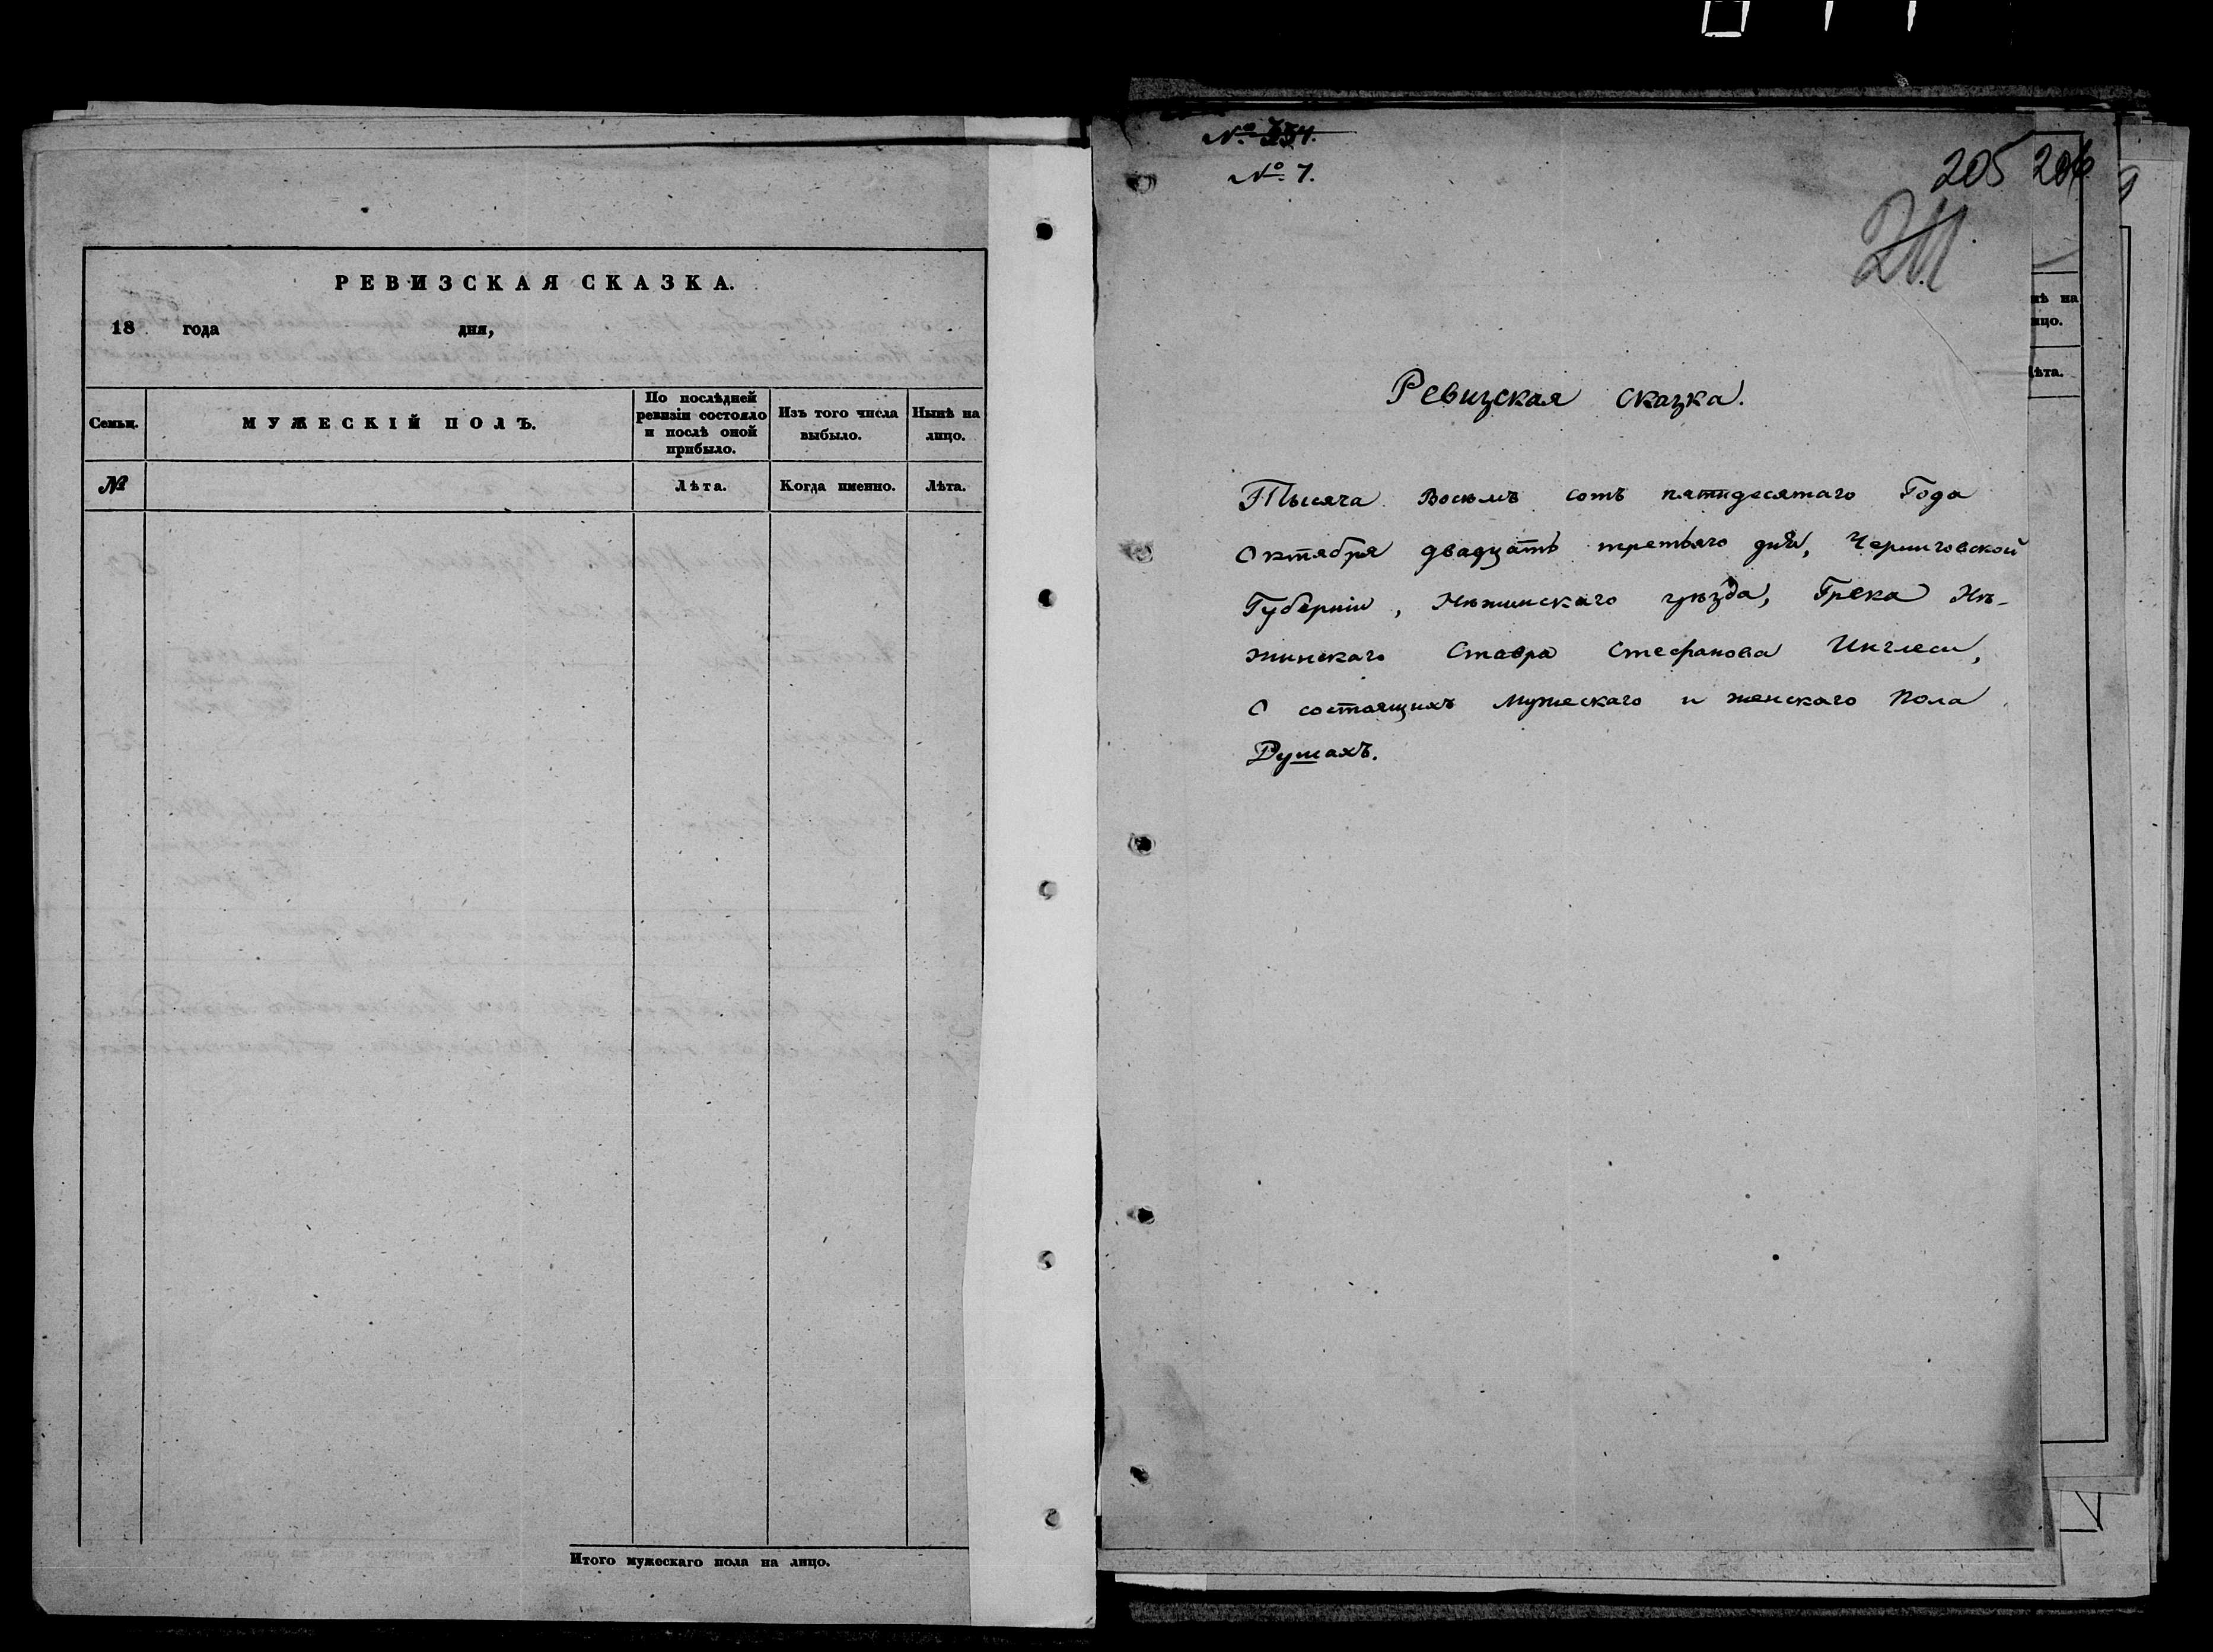 РЕВИЗСКАЯ СКАЗКА.
18 года дня,
Семьи.
МУЖЕСКІЙ ПОЛЪ.
По послѣдней
ревизіи состояло
и послѣ оной
прибыло.
Изъ того числа
выбыло.
Нынѣ на
лицо.
№
Лѣта.
Когда именно.
Лѣта.
Итого мужескаго пола на лицо.
№ 7.
205 206
211
Ревизская сказка.
Тысяча Восемь сотъ пятидесятаго Года
Октября двадцать третьяго дня, Черниговской
Губерніи, Нѣжинскаго уѣзда, Грека Нѣ-
жинскаго Ставра Стефанова Инглеси,
О состоящихъ мужескаго и женскаго пола
Душахъ.
нѣ на
ицо.
ѣта.